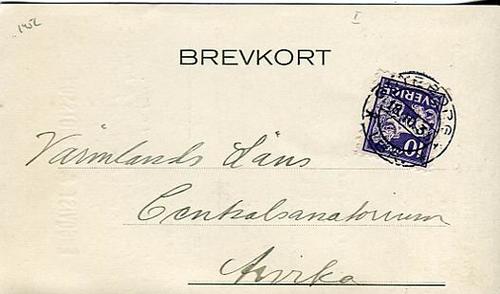 BREVKORT
SVERIGE
10
Värmlands Läns
Centralsanatorium
Arvika